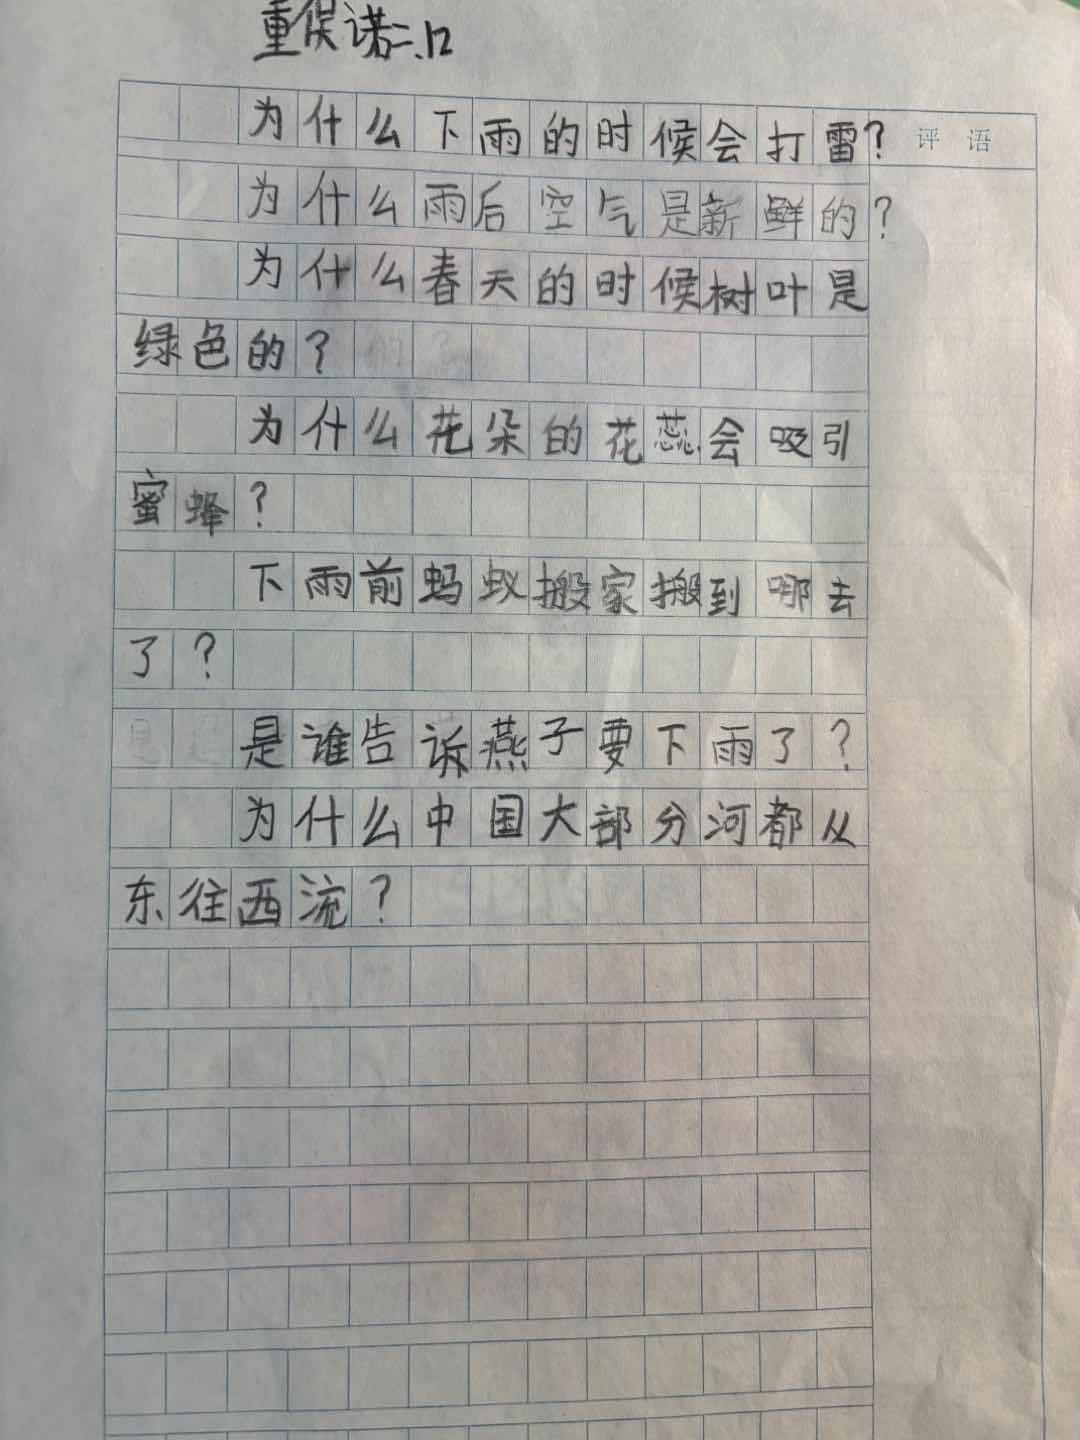 重保诺二.12
为什么下雨的时候会打雷?
评语
为什么雨后空气是新鲜的?
为什么春天的时候树叶是
绿色的?
为什么花朵的花蕊会吸引
蜜蜂?
下雨前蚂蚁搬家搬到哪去
了?
是谁告诉燕子要下雨了?
为什么中国大部分河都从
东往西流?